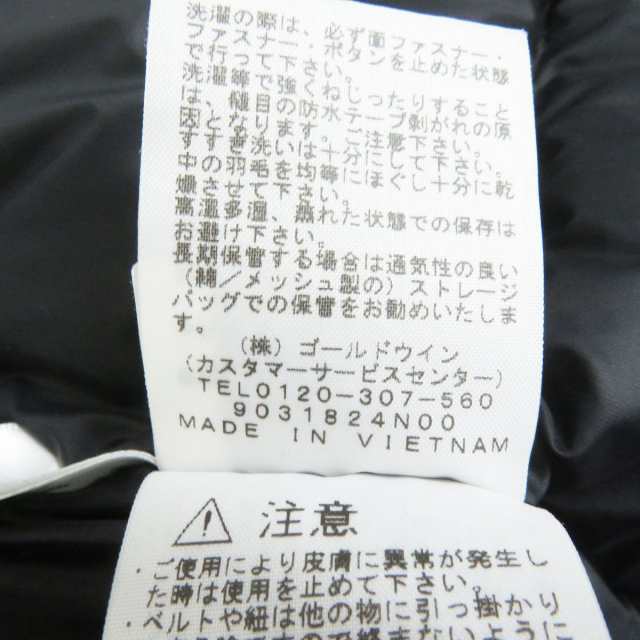 洗濯の際は、必ず面ファスナー・
ファスナー・ボタンを止めた状態
で行って下さい。
洗濯等で強くねじったりすること
は、縫目の防水テープ剥がれの原
因となります。ご注意下さい。
すすぎ洗いは十分にして下さい。
中の羽毛を均等にほぐし十分に乾
燥させて下さい。
高温多湿、濡れた状態での保存は
お避け下さい。
長期保管する場合は通気性の良い
（綿／メッシュ製の）ストレージ
バッグでの保管をお勧めいたしま
す。
（株）ゴールドウイン
（カスタマーサービスセンター）
TEL0120-307-560
9031824N00
MADE IN VIETNAM
注意
・ご使用により皮膚に異常が発生し
た時は使用を止めて下さい。
・ベルトや紐は他の物に引っ掛かり